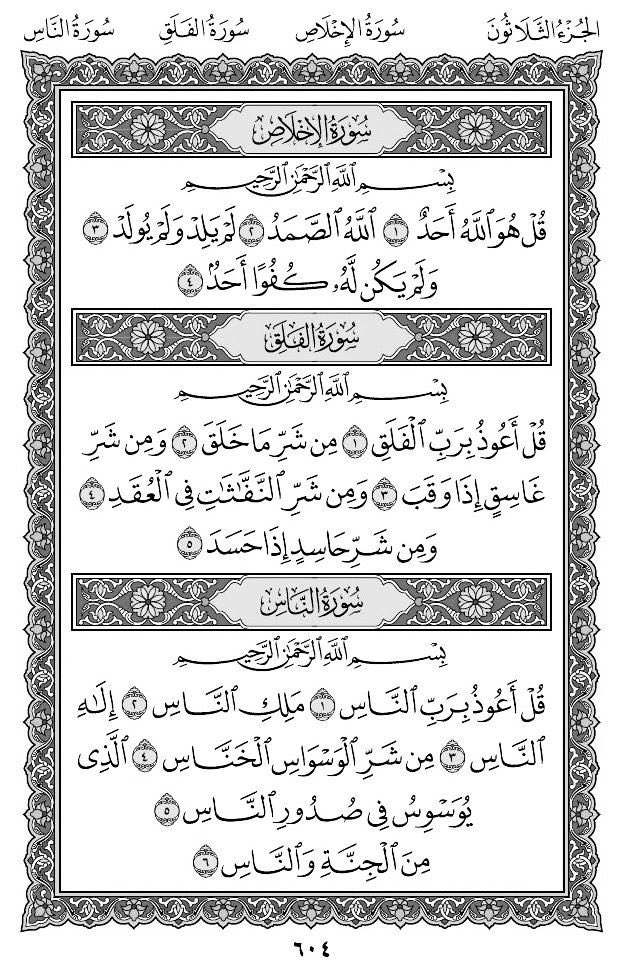 الجزء الثلاثون سورة الإخلاص سورة الفلق سورة الناس
سورة الإخلاص
بِسْمِ ٱللَّهِ ٱلرَّحْمَٰنِ ٱلرَّحِيمِ
قُلْ هُوَ ٱللَّهُ أَحَدٌ ١ ٱللَّهُ ٱلصَّمَدُ ٢ لَمْ يَلِدْ وَلَمْ يُولَدْ ٣
وَلَمْ يَكُن لَّهُۥ كُفُوًا أَحَدٌۢ ٤
سُورَةُ الفَلَقِ
بِسْمِ ٱللَّهِ ٱلرَّحْمَٰنِ ٱلرَّحِيمِ
قُلْ أَعُوذُ بِرَبِّ ٱلْفَلَقِ ١ مِن شَرِّ مَا خَلَقَ ٢ وَمِن شَرِّ
غَاسِقٍ إِذَا وَقَبَ ٣ وَمِن شَرِّ ٱلنَّفَّٰثَٰتِ فِى ٱلْعُقَدِ ٤
وَمِن شَرِّ حَاسِدٍ إِذَا حَسَدَ ٥
سُورَةُ النَّاسِ
بِسْمِ ٱللَّهِ ٱلرَّحْمَٰنِ ٱلرَّحِيمِ
قُلْ أَعُوذُ بِرَبِّ ٱلنَّاسِ ١ مَلِكِ ٱلنَّاسِ ٢ إِلَٰهِ
ٱلنَّاسِ ٣ مِن شَرِّ ٱلْوَسْوَاسِ ٱلْخَنَّاسِ ٤ ٱلَّذِى
يُوَسْوِسُ فِى صُدُورِ ٱلنَّاسِ ٥
مِنَ ٱلْجِنَّةِ وَٱلنَّاسِ ٦
٦٠٤